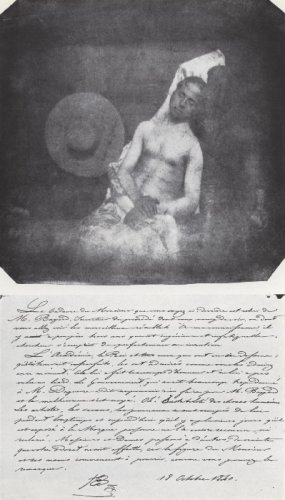 Le cadavre du Monsieur que vous voyez ci-derrière est celui de
M. Bayard, inventeur du procédé dont vous venez de voir, ou dont
vous allez voir les merveilleux résultats. à ma connaissance il
y a à peu près trois ans que cet ingénieux et infatigable
chercheur s'occupait de perfectionner son invention.
L'Académie, le Roi et tous ceux qui ont vu ses dessins,
imparfaits, les ont admirés comme vous les admirez
en ce moment. Cela lui fait beaucoup d'honneur et ne lui a pas
valu un liard. Le Gouvernement qui avait beaucoup trop donné
à M. Daguerre a dit ne pouvoir rien faire pour M. Bayard
et le malheureux s'est noyé. Oh! des choses humaines
les artistes, les savants, les journaux se sont occupés de lui
pendant longtemps et aujourd'hui qu'il y a plusieurs jours qu'il
est exposé à la Morgue personne ne l'a encore reconnu ni
réclamé. Messieurs et Dames, passons à d'autres, de crainte
que votre odorat ne soit affecté, car la figure du Monsieur
et ses mains commencent à pourrir, comme vous pouvez le
remarquer.
H B
18 Octobre 1840.